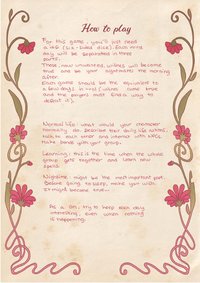 How to play
For this game, you'll just need
a d6 (six-sided dice). Each game
day will be separated in three
parts.
These (now) unwanted wishes will come
true and be your nightmares the morning
after.
Each game should be the equivalent to
a few days in-world (wishes come true
and the players must find a way to
defeat it).
Normal life: what would your character
normally do, describe their daily life actions,
talk to each other and interact with NPCs,
make bonds with your group.
Learning: this is the time when the whole
group gets together and learn new
spells.
Nightime: might be the most important part.
Before going to sleep, make you wish
it might become true...
As a GM, try to keep each day
interesting, even when nothing
is happening.